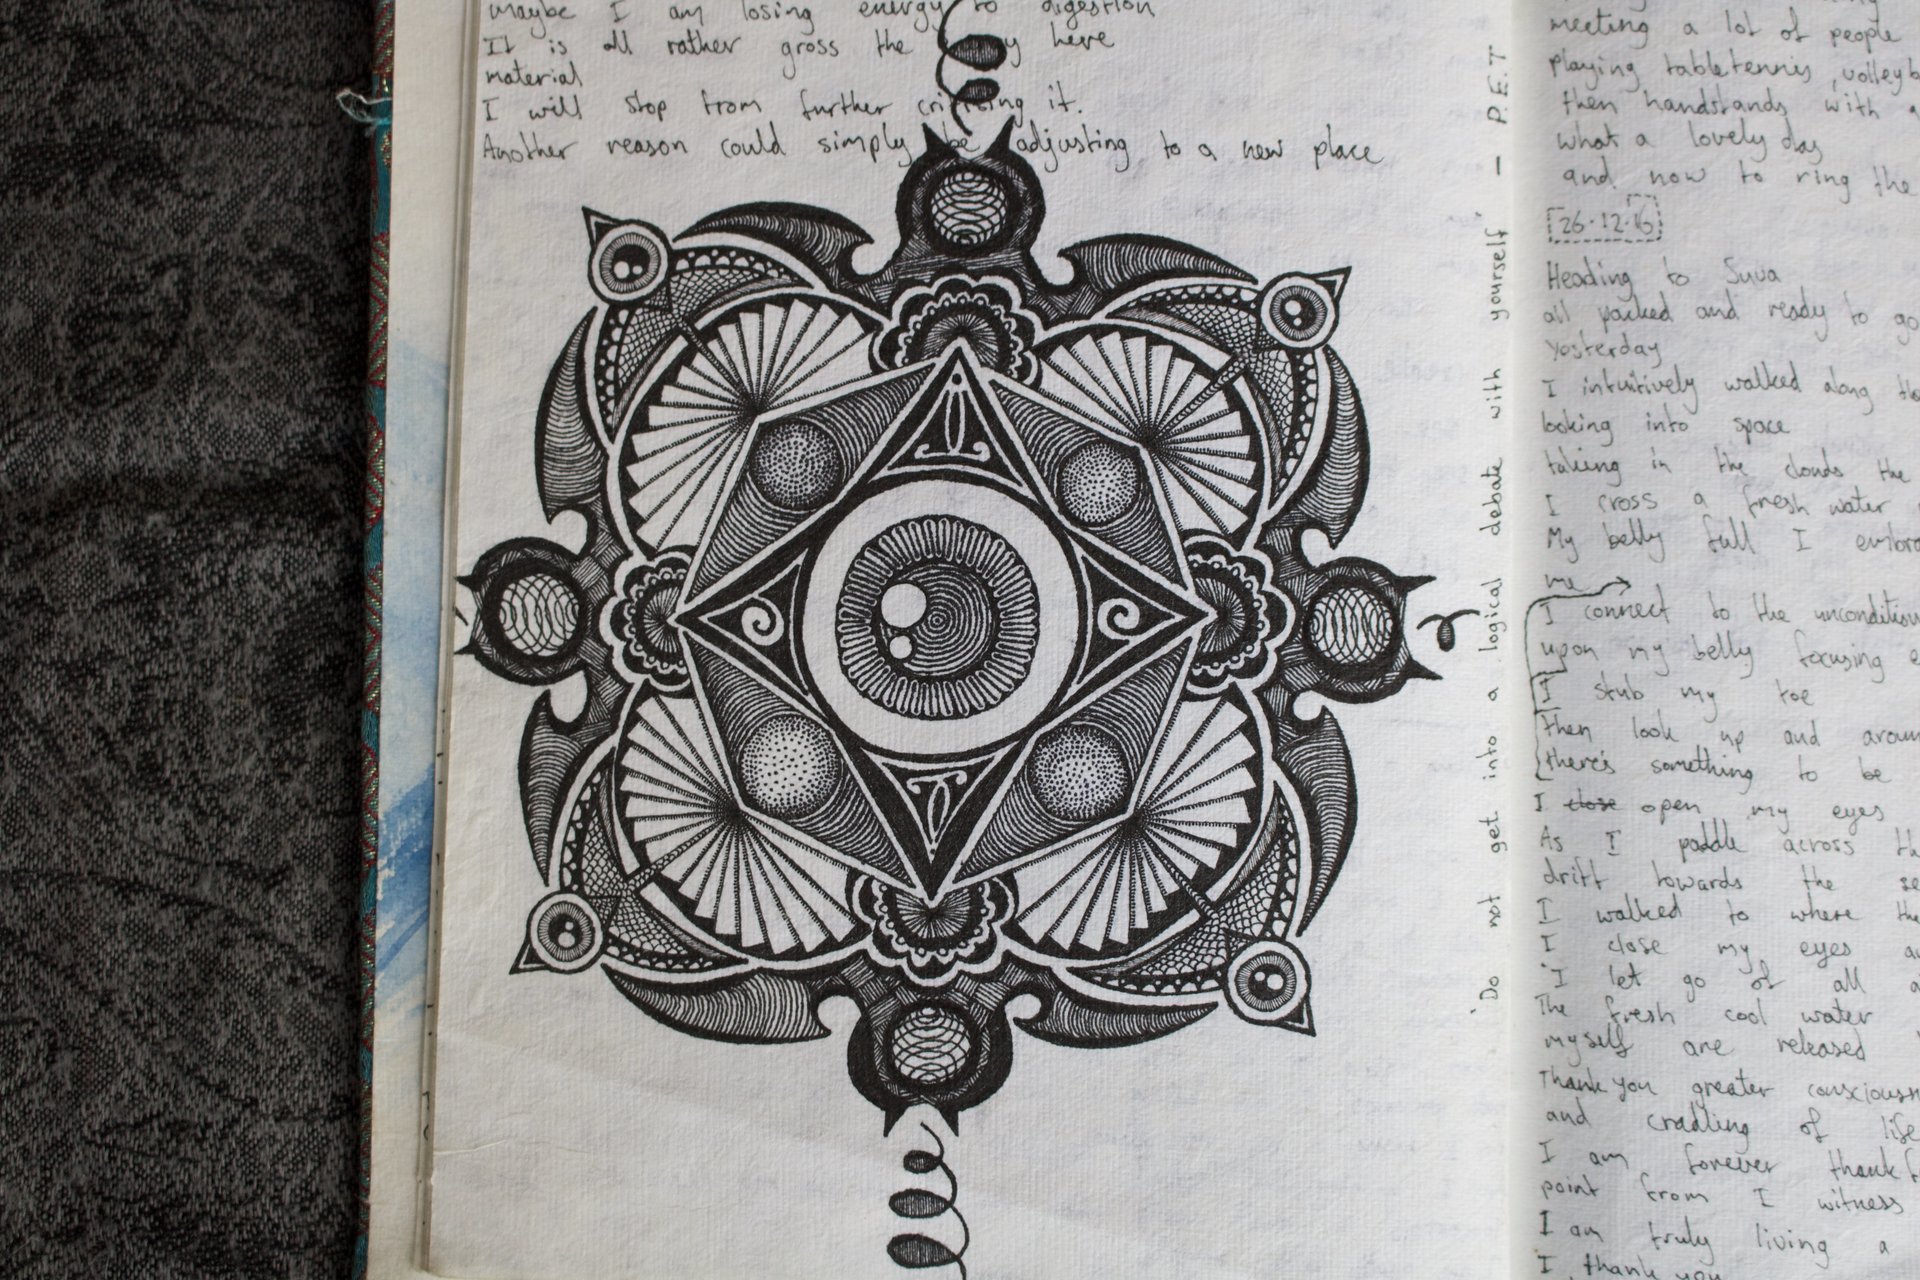 maybe I am losing energy to digestion
It is all rather gross the here
material
I will stop from further it.
Another reason could simply be adjusting to a new place
'Do not get into a logical debate with yourself' - P.E.T
meeting a lot of people
playing tabletennis, volleyb
then handstands with
what a lovely day
and now to ring the
26.12.16
Heading to Suva
all packed and ready to go
Yesterday
I intuitively walked along
looking into space
taking in the clouds the
I cross a fresh water
My belly full I embra
me
I connect to the unconditiou
upon my belly focusing
I stub my toe
then look up and aroun
there's something to be
I close open my eyes
As I paddle across th
drift towards the se
I walked to where the
I close my eyes
I let go of all
The fresh cool water
myself are released
Thank you greater consciousn
and cradling of life
I am forever thankf
point from I witness
I am truly living a
I thank you